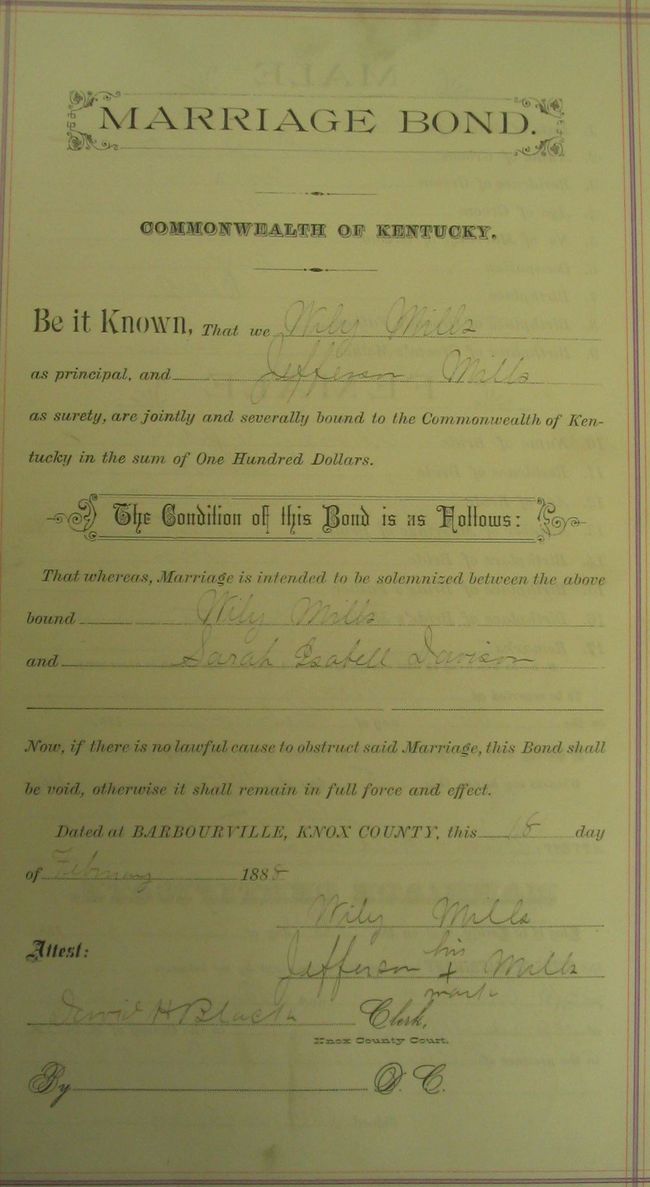 MARRIAGE BOND.
COMMONWEALTH OF KENTUCKY.
Be it Known, That we Wily Mills
as principal, and Jefferson Mills
as surety, are jointly and severally bound to the Commonwealth of Ken-
tucky in the sum of One Hundred Dollars.
The Condition of this Bond is as Follows:
That whereas, Marriage is intended to be solemnized between the above
bound Wily Mills
and Sarah Isabell Davison
Now, if there is no lawful cause to obstruct said Marriage, this Bond shall
be void, otherwise it shall remain in full force and effect.
Dated at BARBOURVILLE, KNOX COUNTY, this 18 day
of February 1888
Wily Mills
Attest:
Jefferson his + mark Mills
David H Clerk,
Knox County Court.
By D. C.